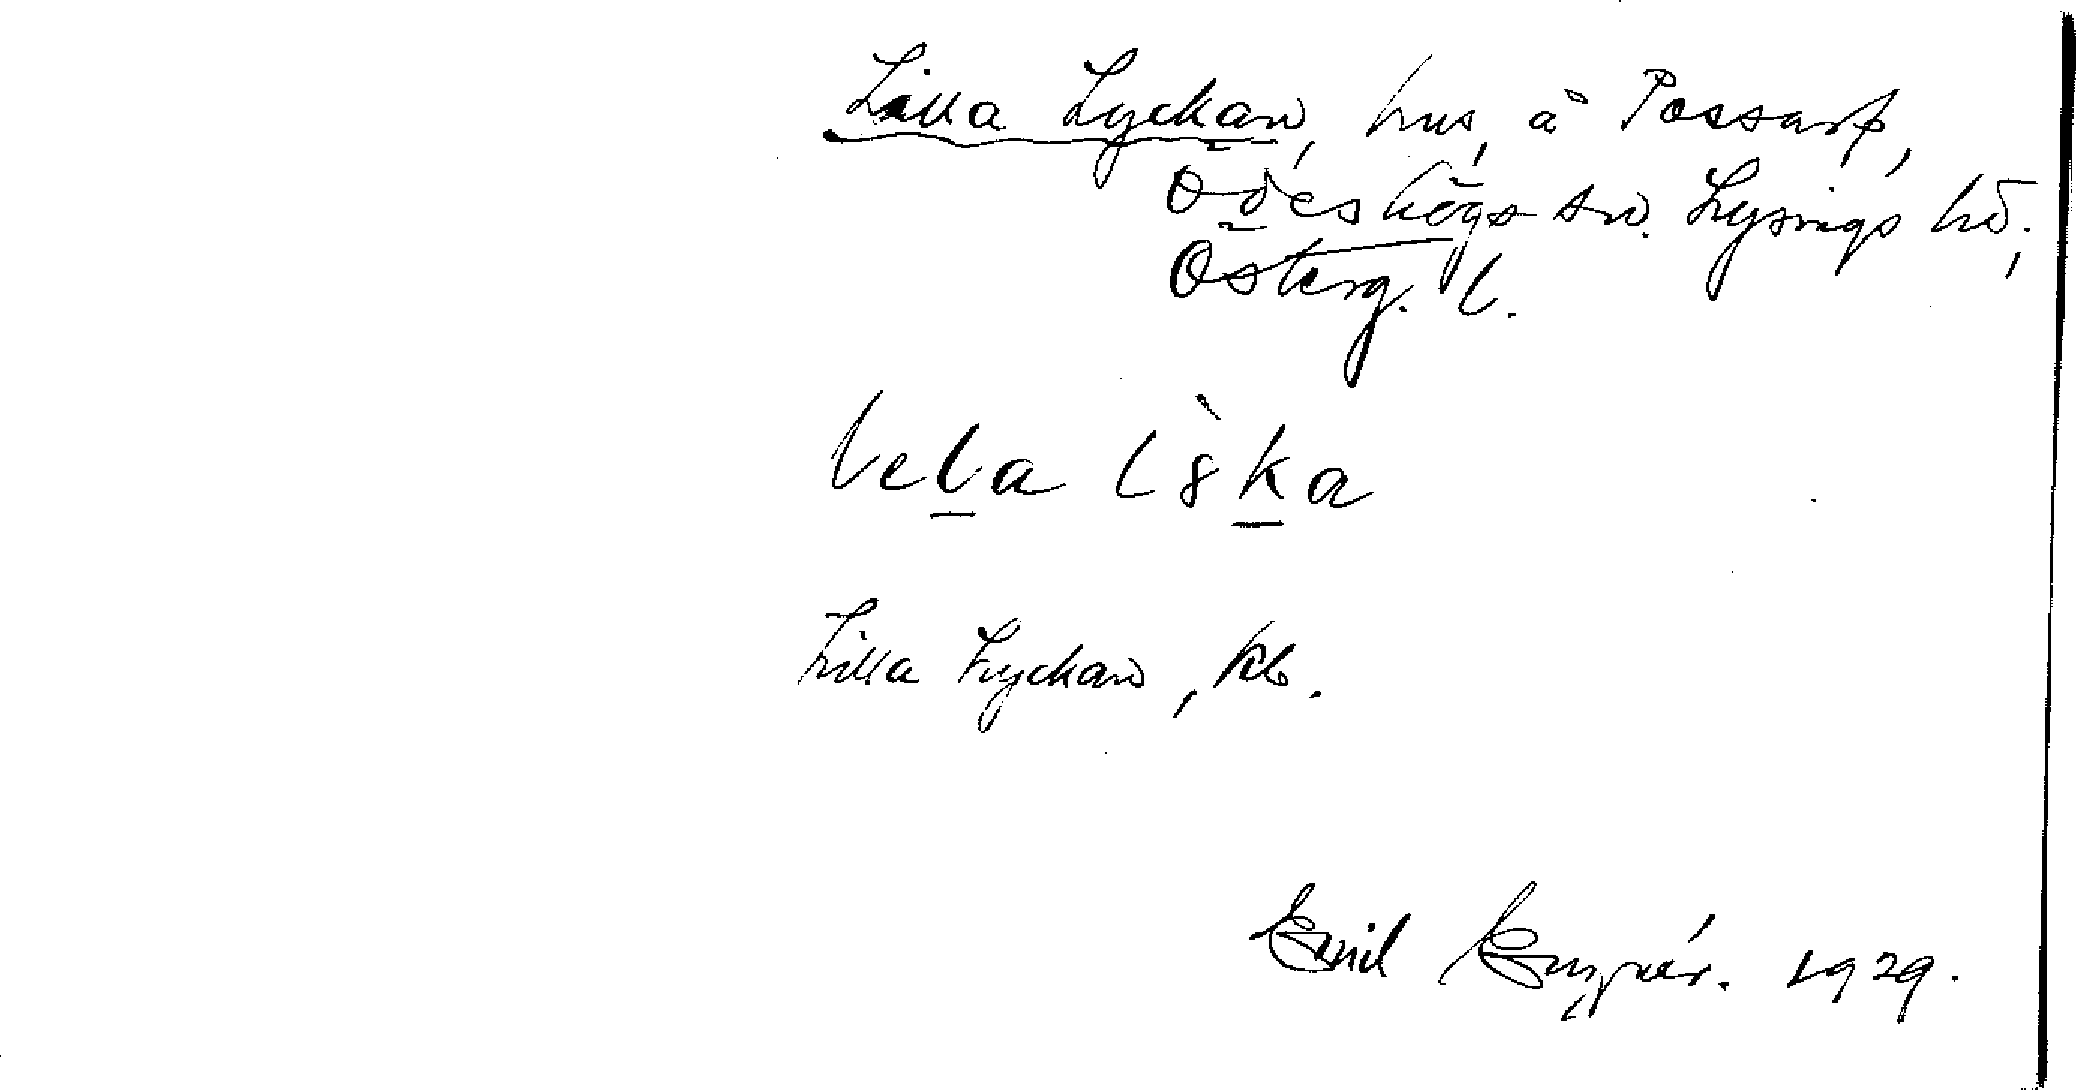 Lilla Lyckan, hus, å Possarp,
Ödeshögs sn. Lysings hd.,
Österg. l.
lela l8̀ka
Lilla Lyckan, kb.
Emil 1929.